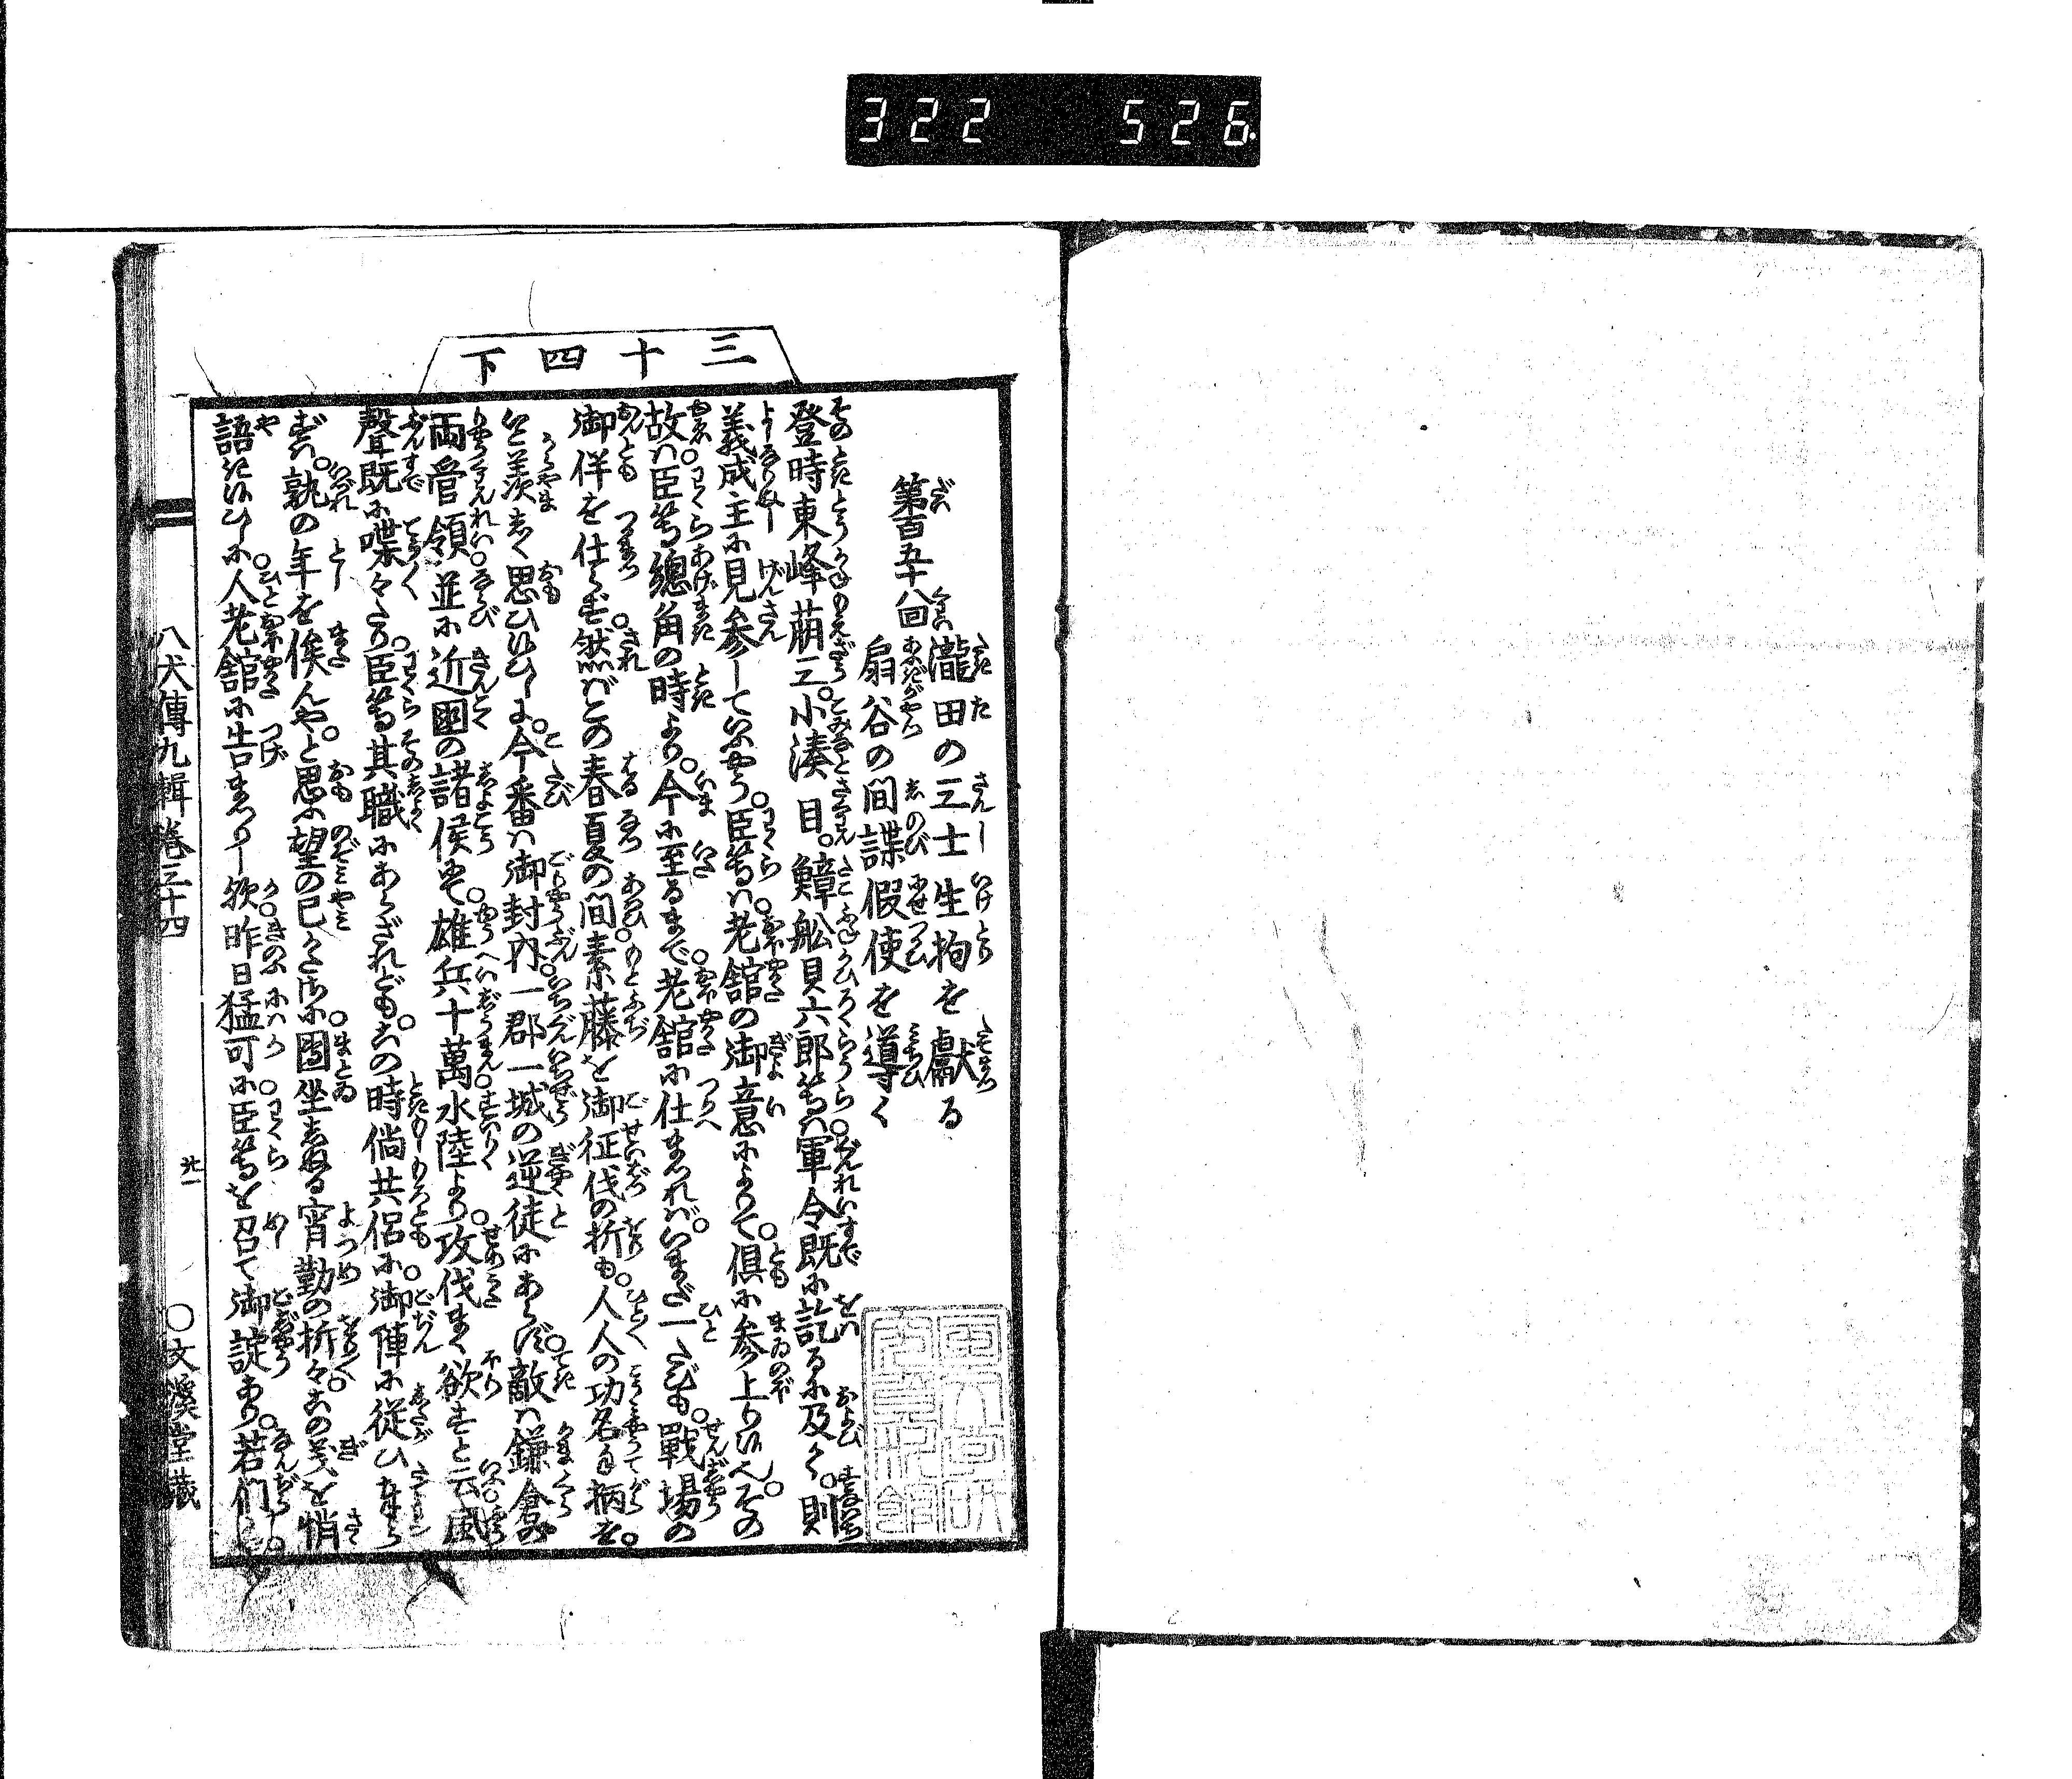 322 526
三十四下
第百五十八回
瀧田の三士生拘を獻る
扇谷の間諜假使を導く
登時東峰萠三。小湊目。鱆舩貝六郎等ハ軍令既に訖るに及く。則
義成主に見参して いふやう。臣等ハ老舘の御意によりて。倶に参上りぬ。その
故ハ臣等總角の時より。今に至るまで老舘に仕まつれバ。いまだ一トたびも。戰場の
御伴を仕らず。然バこの春夏の間素藤を御征伐の折も。人人の功名手柄を。
いと羨しく思ひ侍ひしに。今番ハ御封内一郡一城の逆徒にあらず。敵ハ鎌倉の
両管領並に近國の諸侯也。雄兵十萬水陸より攻伐まく欲すと云風
聲既に喋々たり。臣等其職にあらざれども。この時倘共侶に御陣に従ひまつら
ずハ。孰の年を俟んや。と思ふ望の已かたさに團坐しぬる宵勤の折々。この義を悄
語き侍ひしに人老舘に告まつりし欤昨日猛可に臣等を召て御諚あり。若們
八犬傳九輯卷三十四
廿一
〇文溪堂藏